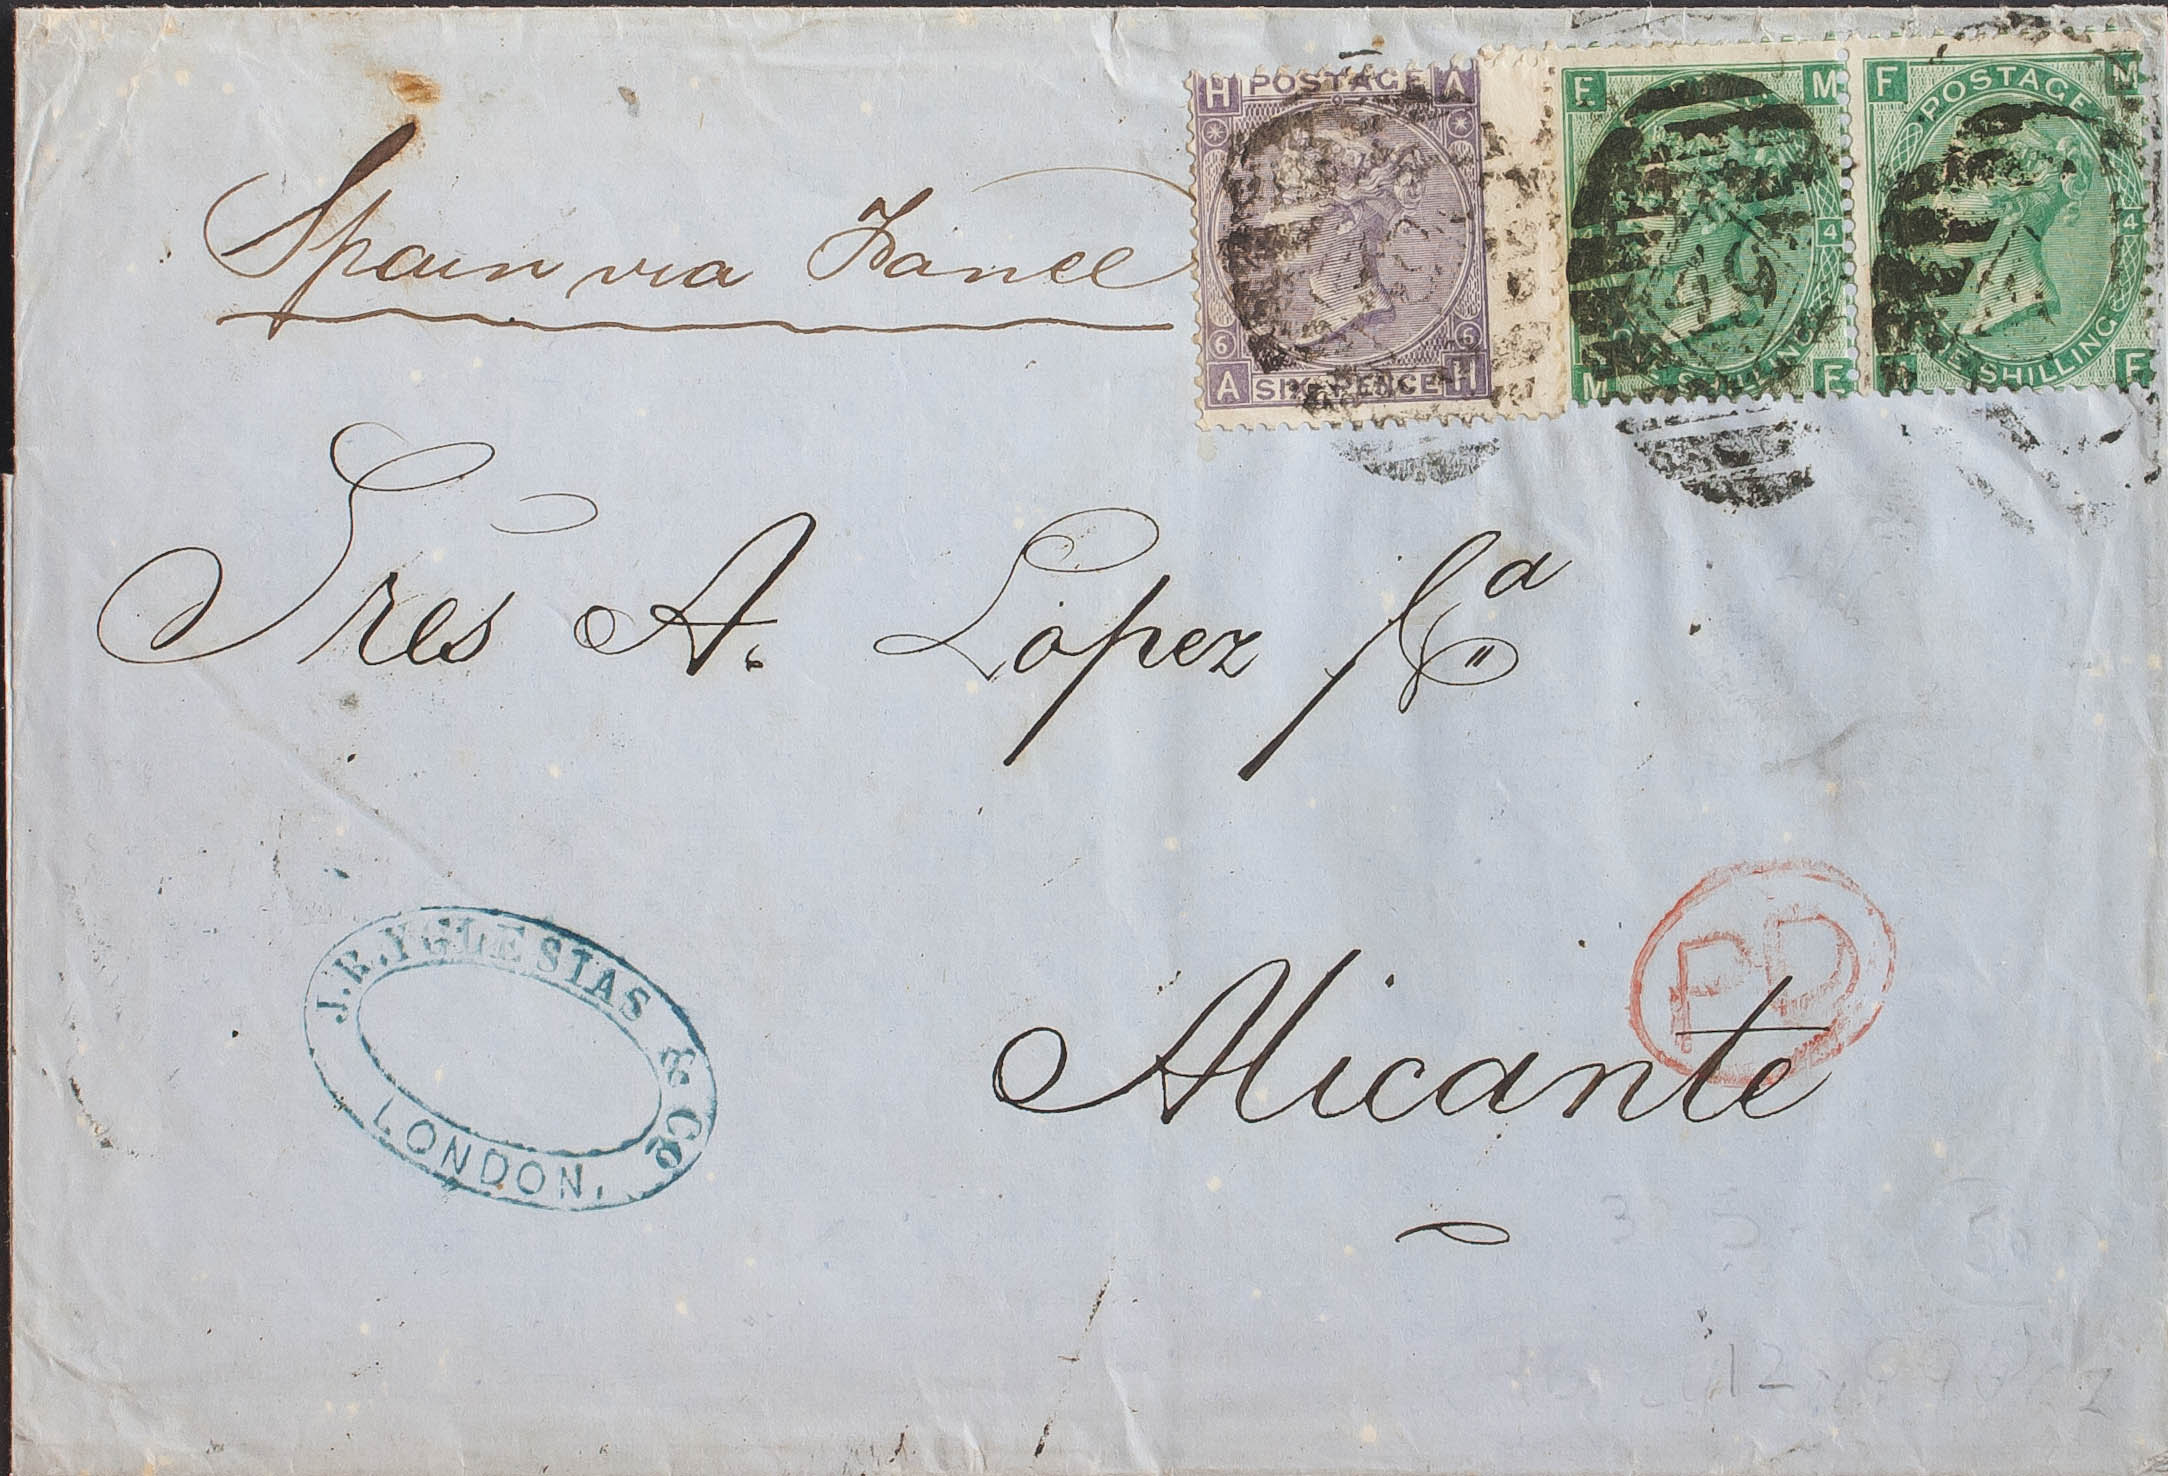 Spain via France
H POSTAGE A
6 6
A SIX PENCE H
F M
4
M SHILLING F
F POSTAGE M
4
ONE SHILLING F
Sres A. Lopez y Ca
J. R. YGLESIAS & Co
LONDON.
PD
Alicante